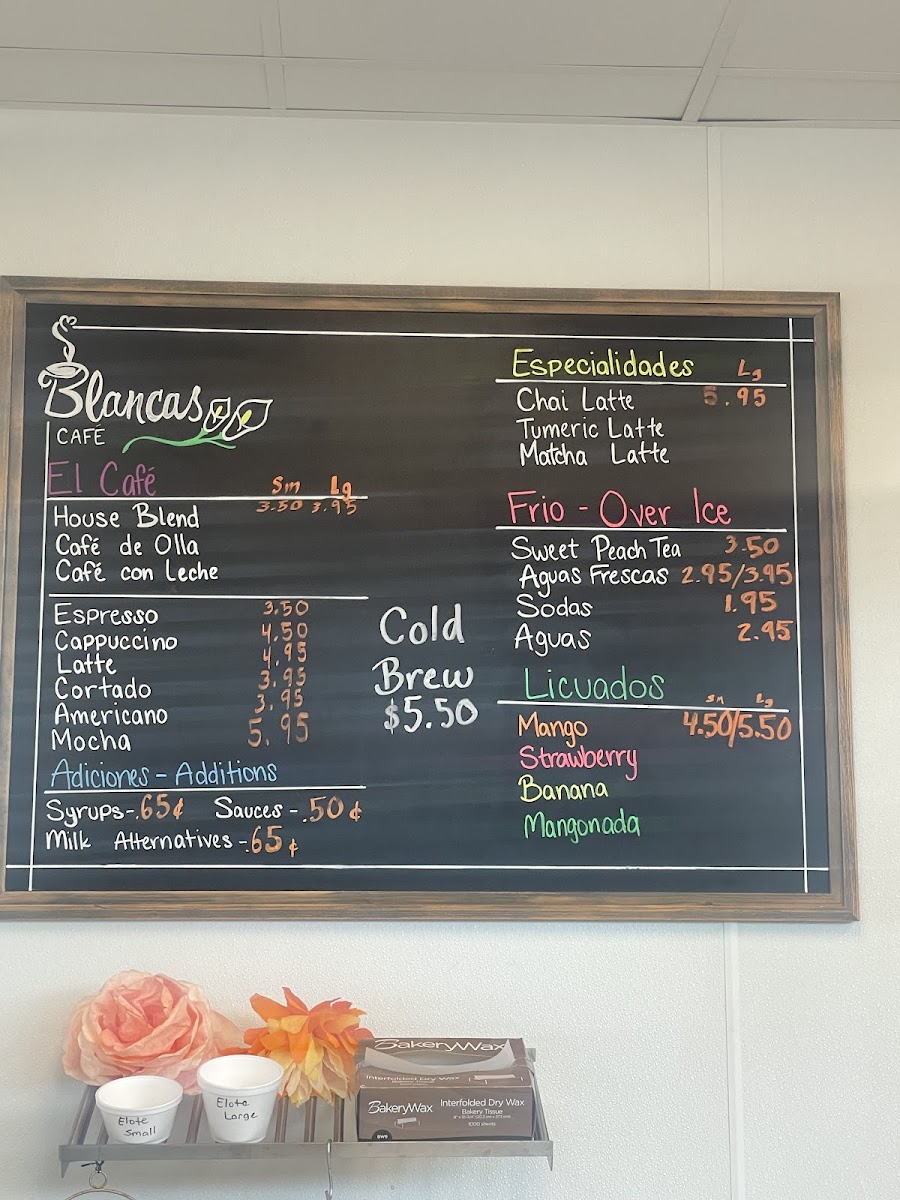 Blancas
CAFÉ
El Café Sm Lg
3.50 3.95
House Blend
Café de Olla
Café con Leche
Espresso 3.50
Cappuccino 4.50
Latte 4.95
Cortado 3.95
Americano 3.95
Mocha 5.95
Adiciones - Additions
Syrups-.65¢ Sauces - .50¢
Milk Alternatives -.65¢
Cold
Brew
$5.50
Especialidades Lg
Chai Latte 5.95
Tumeric Latte
Matcha Latte
Frio - Over Ice
Sweet Peach Tea 3.50
Aguas Frescas 2.95/3.95
Sodas 1.95
Aguas 2.95
Licuados
sm Lg
Mango 4.50/5.50
Strawberry
Banana
Mangonada
Elote
Small
Elote
Large
BakeryWax
Interfolded Dry Wax
BakeryWax
Interfolded Dry Wax
Bakery Tissue
1000 sheets